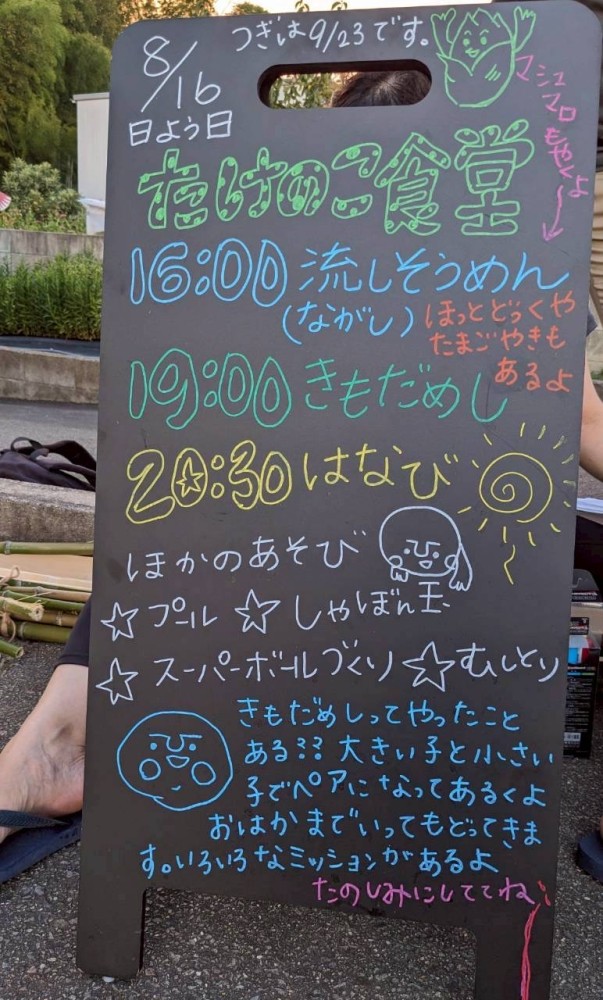 つぎは9/23です。
8/16
日よう日
マシュ
マロ
もやくよ
たけのこ食堂
16:00 流しそうめん
(ながし)
ほっとどっくや
たまごやきも
あるよ
19:00 きもだめし
20:30 はなび
ほかのあそび
☆プール ☆しゃぼん玉
☆スーパーボールづくり ☆むしとり
きもだめしってやったこと
ある?? 大きい子と小さい
子でペアになってあるくよ
おはかまでいってもどってきま
す。いろいろなミッションがあるよ
たのしみにしててね